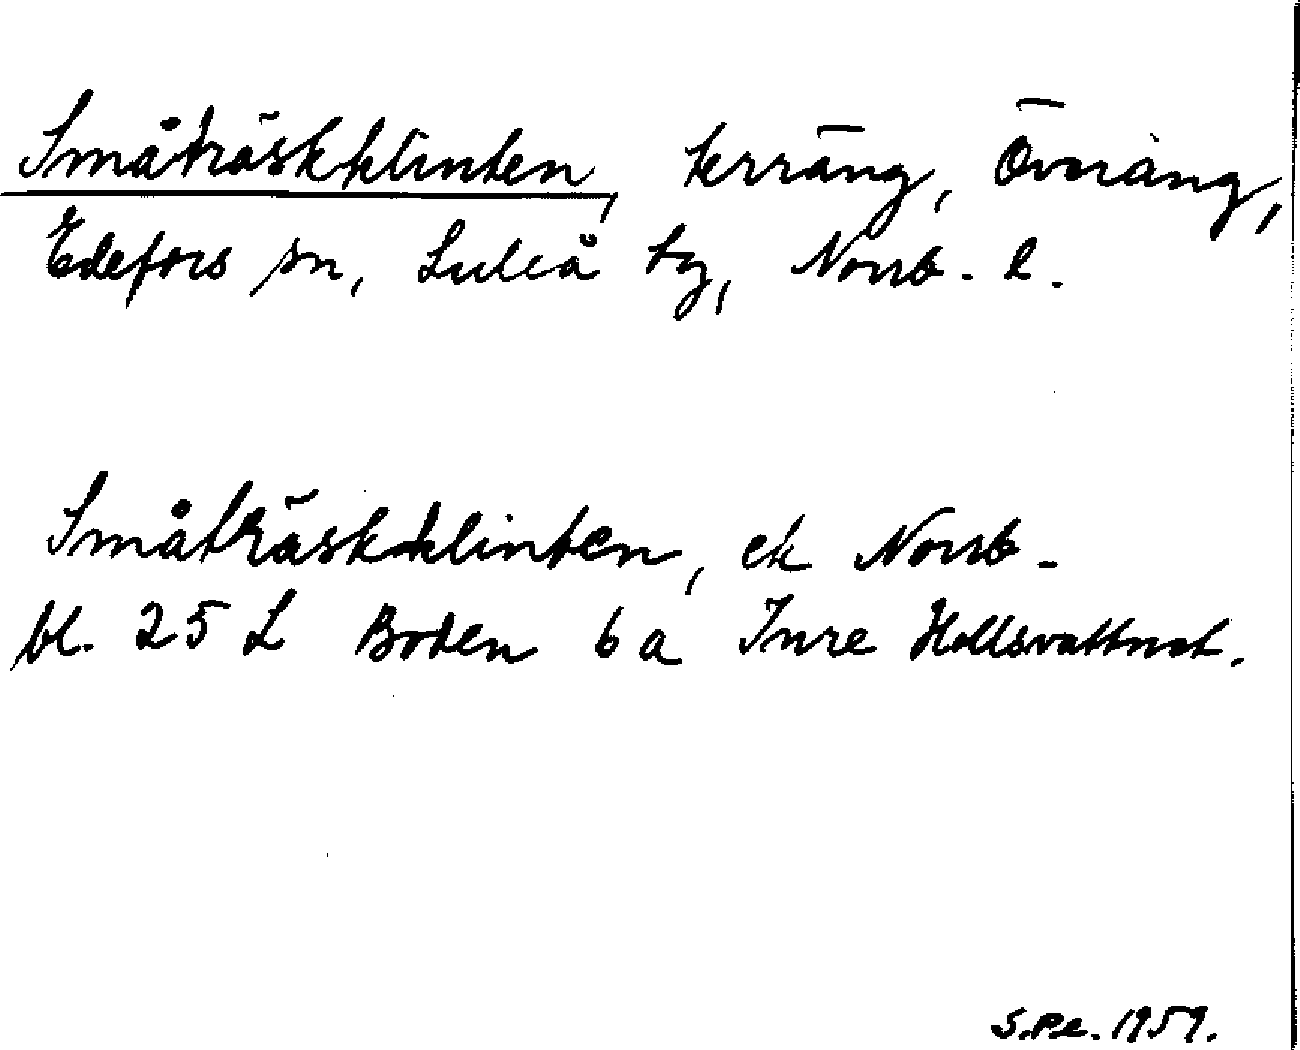 Småträskklinten, terräng, Överäng,
Edefors sn, Luleå tg, Norrb. l.
Småträskklinten, ek Norrb.
bl. 25 L Boden 6 a Inre Hollsvattnet.
S.P.e. 1959.